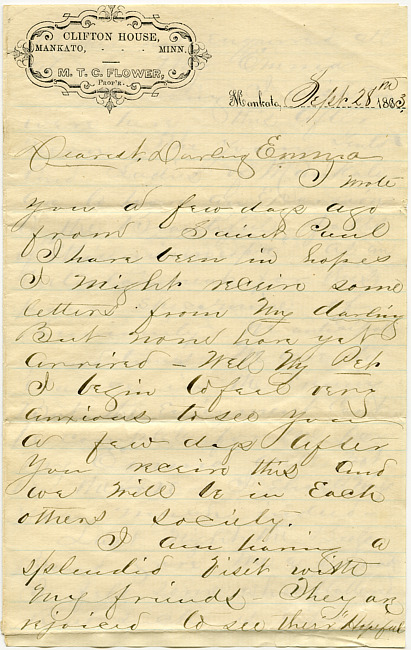 CLIFTON HOUSE,
MANKATO, - - - MINN.
M. T. C. FLOWER,
PROP'R.
Mankato, Sept 28th 1883
Dearest Darling Emma
I wrote
you a few days ago
from Saint Paul
I have been in hopes
I might receive some
letters from My darling
But none have yet
arrived – Well My Pet
I begin to feel very
anxious to see you
a few days after
you receive this and
we will be in Each
others society.
I am having a
splendid Visit with
My friends – They are
rejoiced to see their "Hopeful